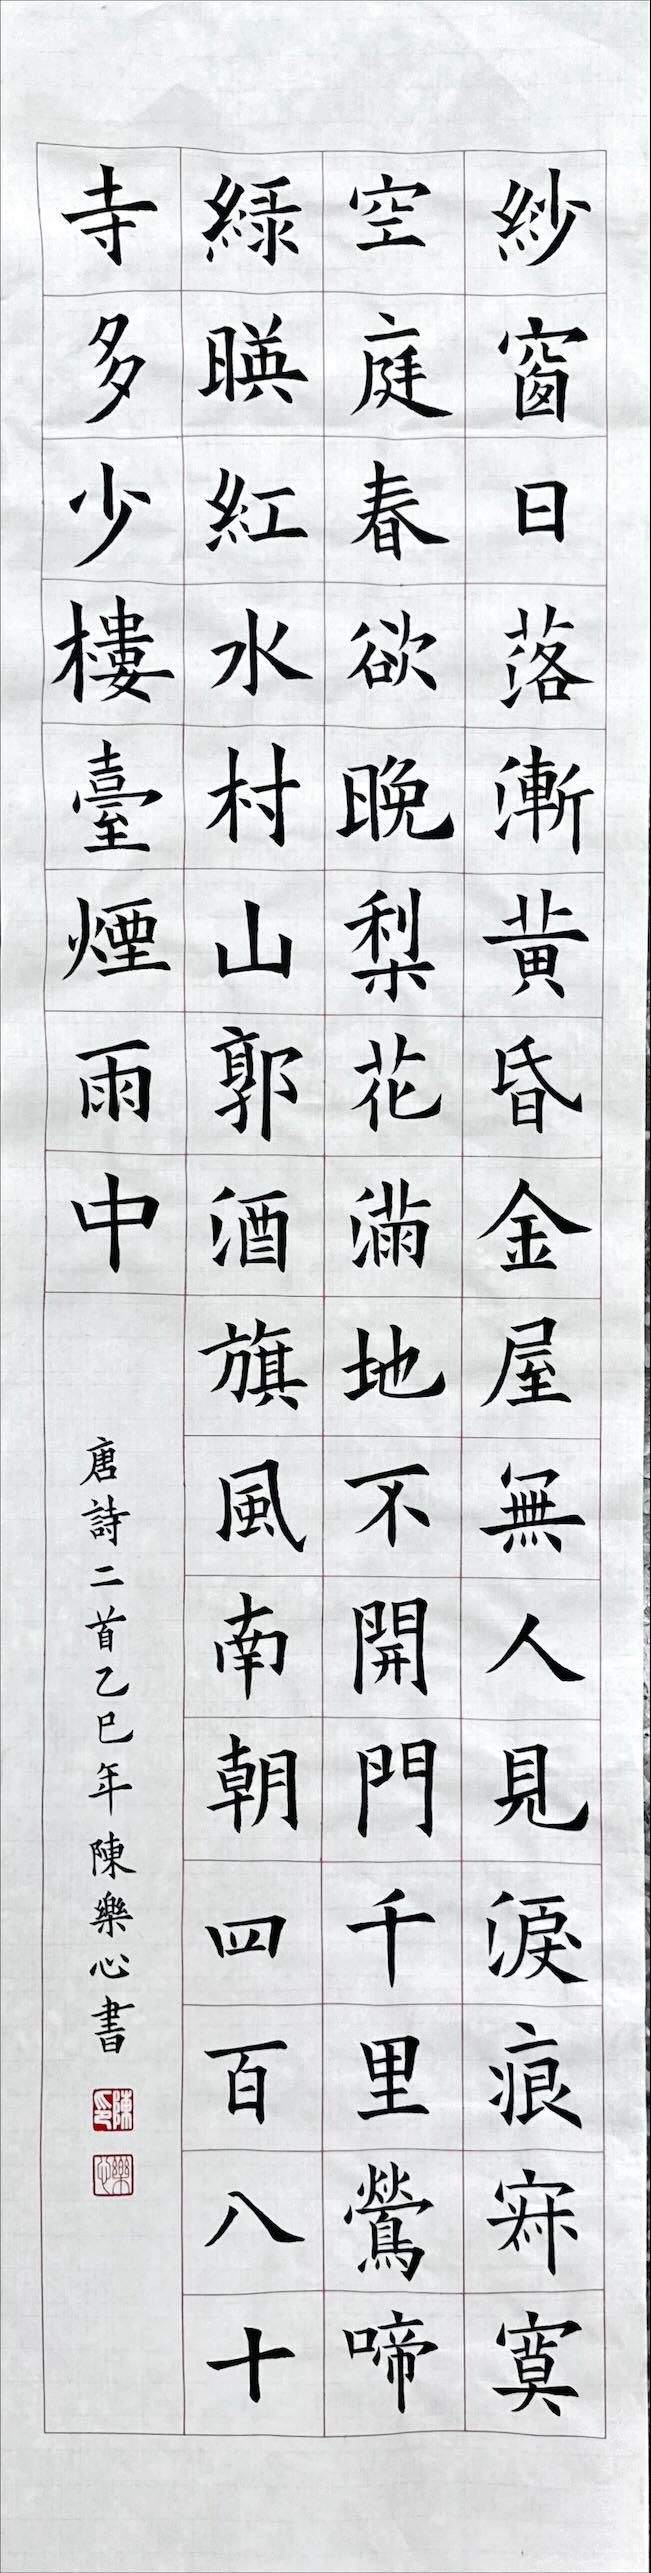 紗窗日落漸黃昏金屋無人見淚痕寂寞
空庭春欲晚梨花滿地不開門千里鶯啼
綠暎紅水村山郭酒旗風南朝四百八十
寺多少樓臺煙雨中
唐詩二首乙巳年陳樂心書
陳印
樂心